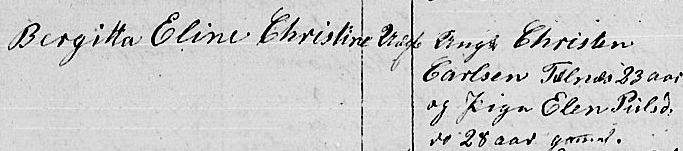 Bergitta Eline Christine Uægt Ungk Christen
Carlsen Tælnæs 23 aar
og Pige Elen Pålsd:
28 aar gammel.